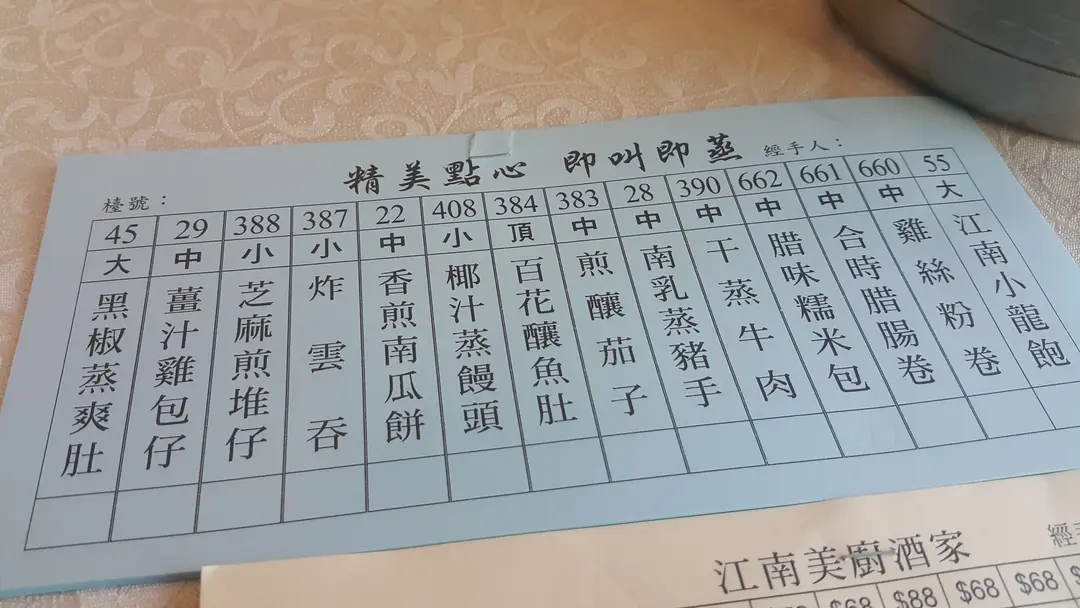 精美點心 即叫即蒸
檯號： 經手人：
45 29 388 387 22 408 384 383 28 390 662 661 660 55
大 中 小 小 中 小 頂 中 中 中 中 中 中 大
黑椒蒸爽肚
薑汁雞包仔
芝麻煎堆仔
炸雲吞
香煎南瓜餅
椰汁蒸饅頭
百花釀魚肚
煎釀茄子
南乳蒸豬手
干蒸牛肉
腊味糯米包
合時腊腸卷
雞絲粉卷
江南小龍飽
江南美廚酒家
$68 $88 $68 $68